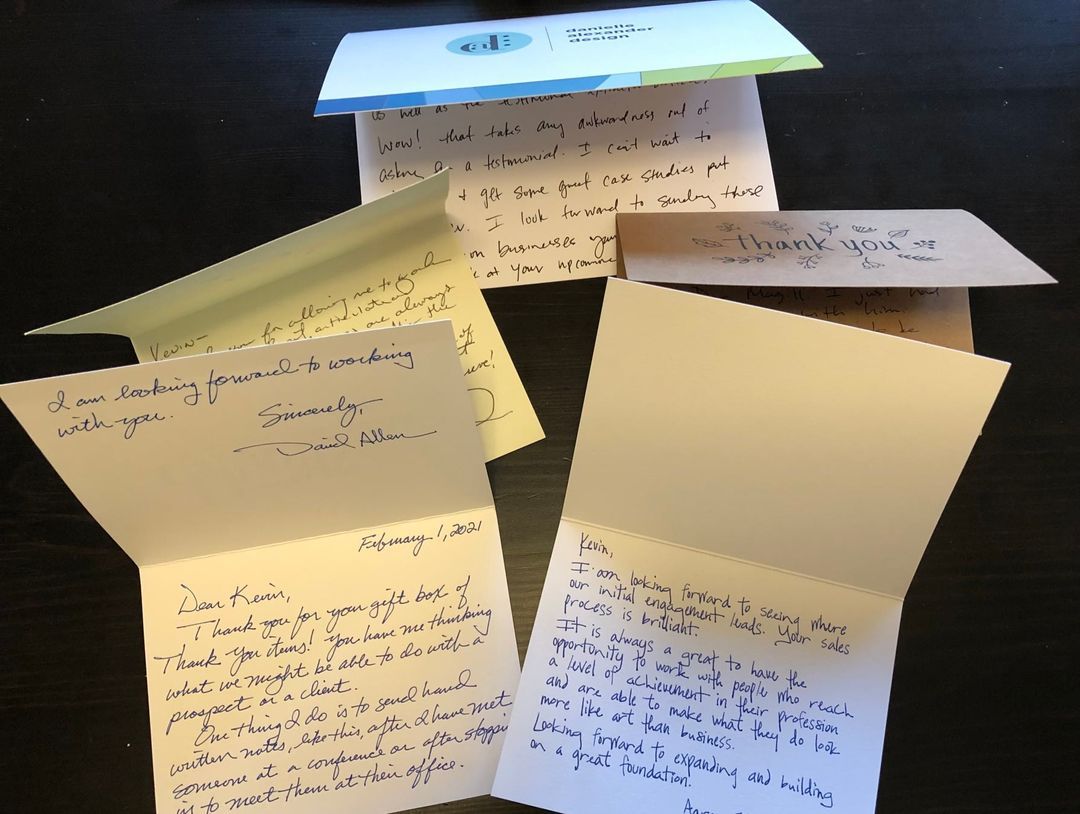 danielle
alexander
design
Wow! that takes any awkwardness out of
asking for a testimonial. I can't wait to
get some great case studies put
I look forward to sending these
on businesses you
at your upcoming
thank you
May 11 I just had
with him.
to be
Kevin-
for allowing me to work
are always
of
I am looking forward to working
with you.
Sincerely,
David Allen
February 1, 2021
Dear Kevin,
Thank you for your gift box of
Thank you items! You have me thinking
what we might be able to do with a
prospect or a client.
One thing I do is to send hand
written notes, like this, after I have met
someone at a conference or after stoppi
in to meet them at their office.
Kevin,
I am looking forward to seeing where
our initial engagement leads. Your sales
process is brilliant.
It is always a great to have the
opportunity to work with people who reach
a level of achievement in their profession
and are able to make what they do look
more like art than business.
Looking forward to expanding and building
on a great foundation.